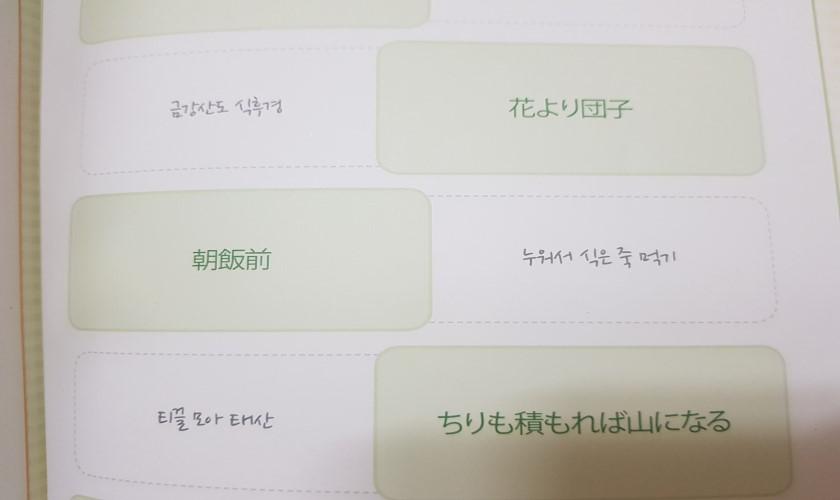 금강산도 식후경
花より団子
朝飯前
누워서 식은 죽 먹기
티끌 모아 태산
ちりも積もれば山になる